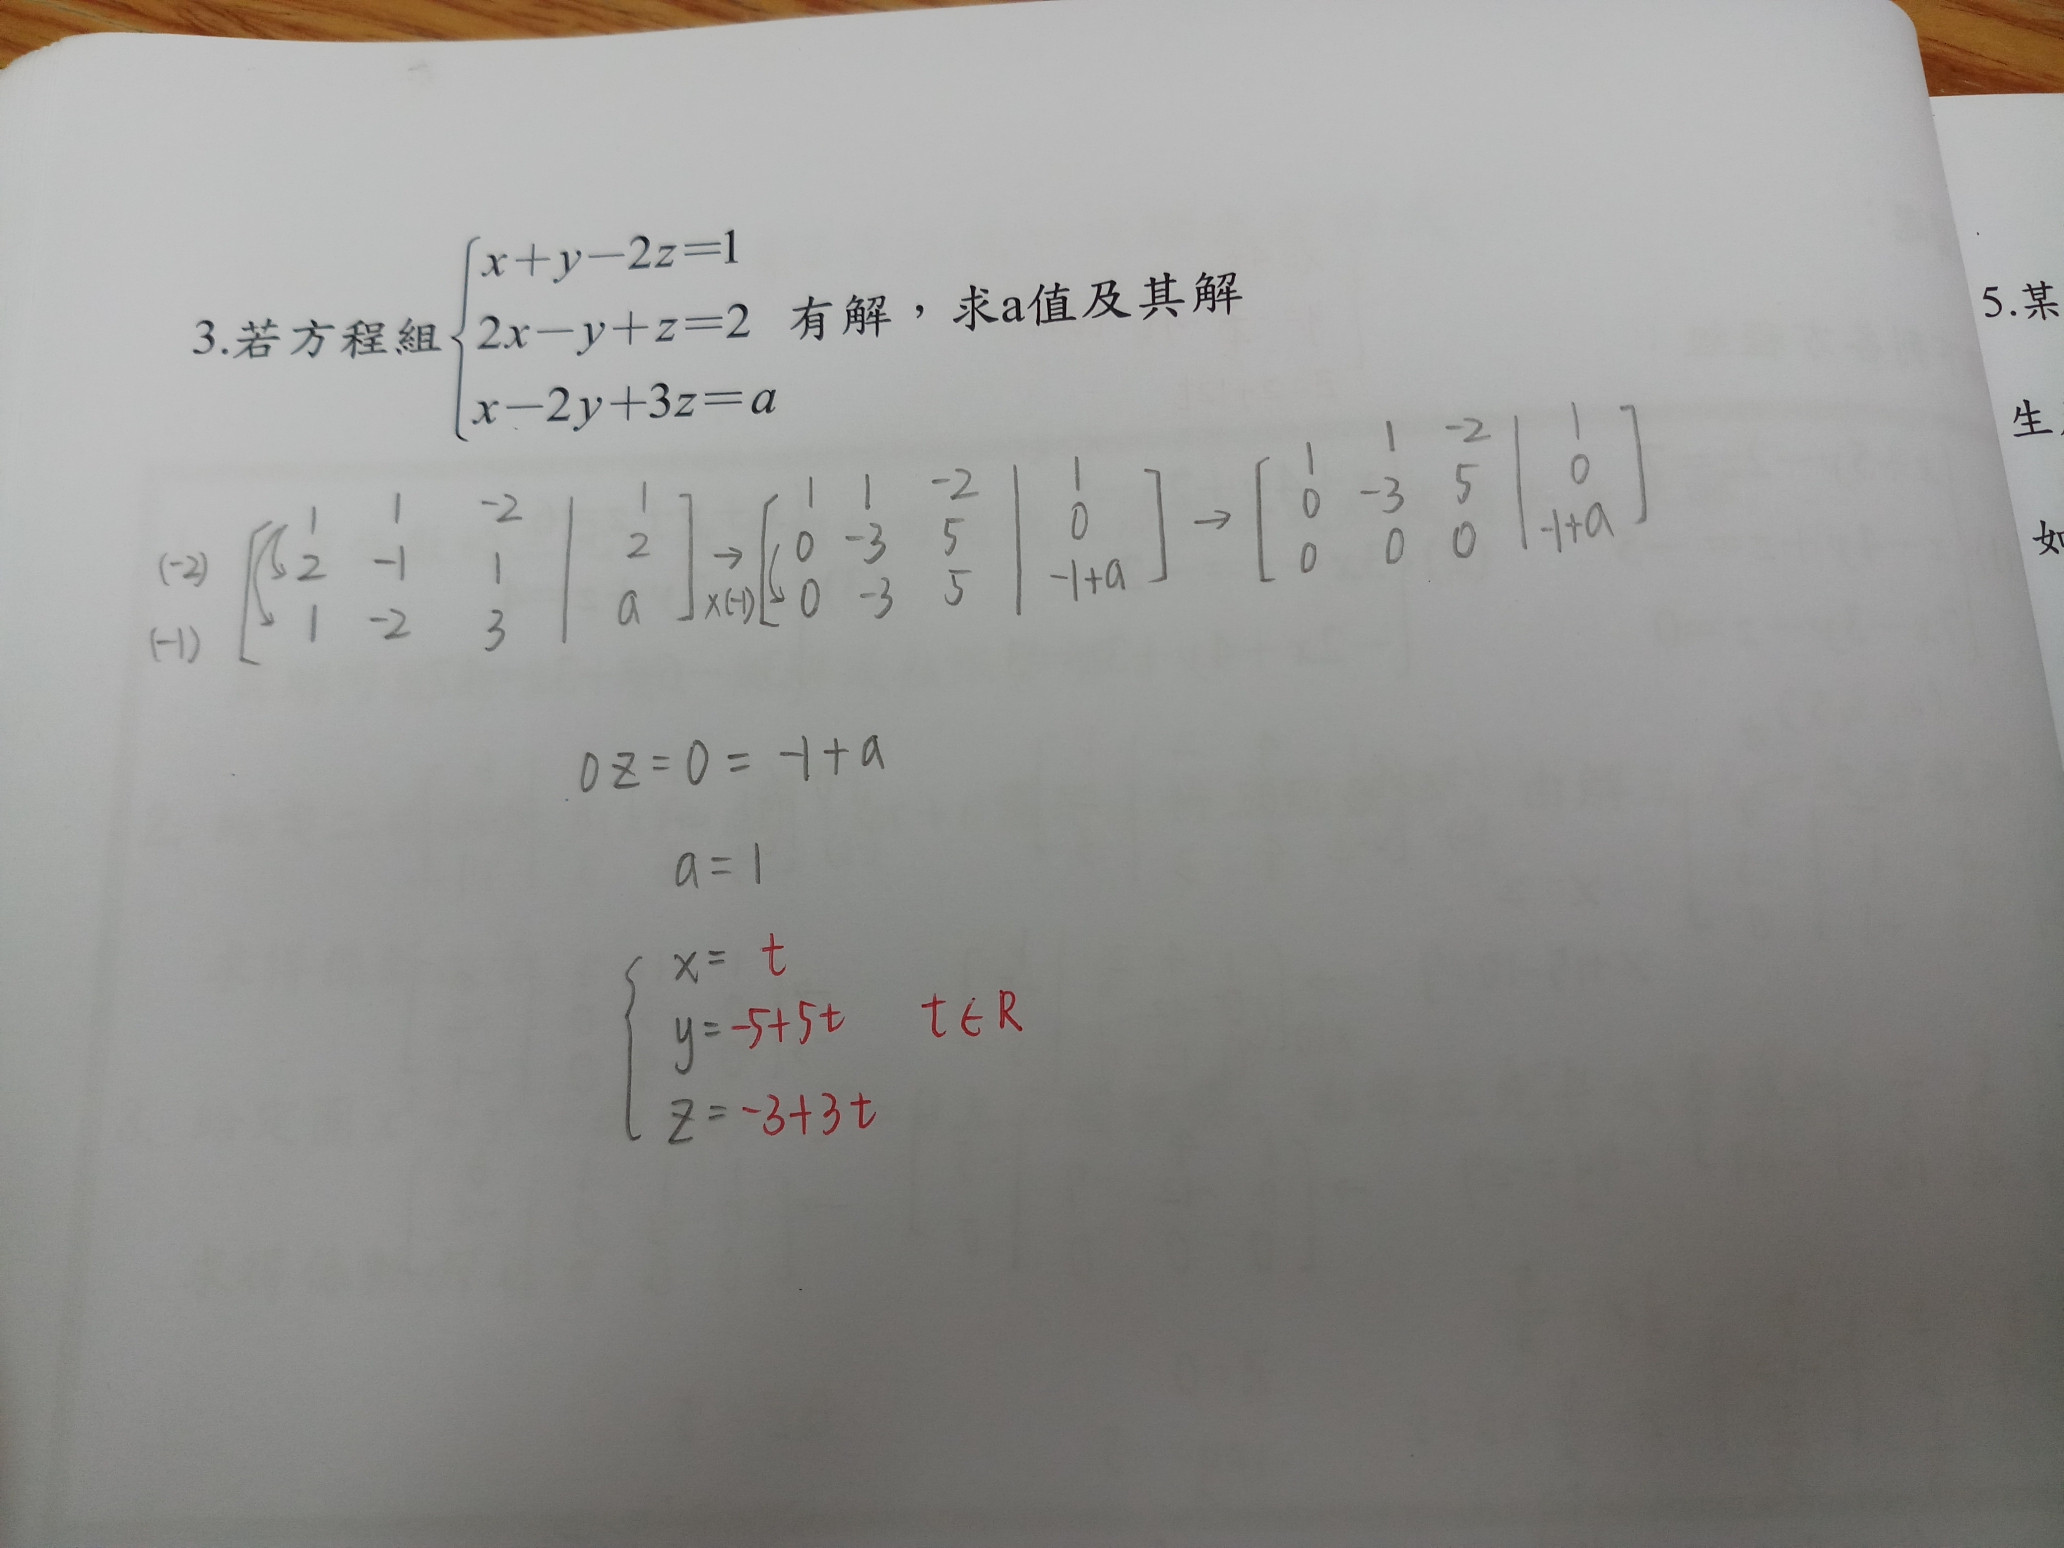 3.若方程組
x+y−2z=1
2x−y+z=2
x−2y+3z=a
有解，求a值及其解
(-2)
(-1)
1 1 -2 | 1
2 -1 1 | 2
1 -2 3 | a
→
x(-1)
1 1 -2 | 1
0 -3 5 | 0
0 -3 5 | -1+a
→
1 1 -2 | 1
0 -3 5 | 0
0 0 0 | -1+a
0z=0=-1+a
a=1
x= t
y=-5+5t t∈R
z=-3+3t
5.某
生
如